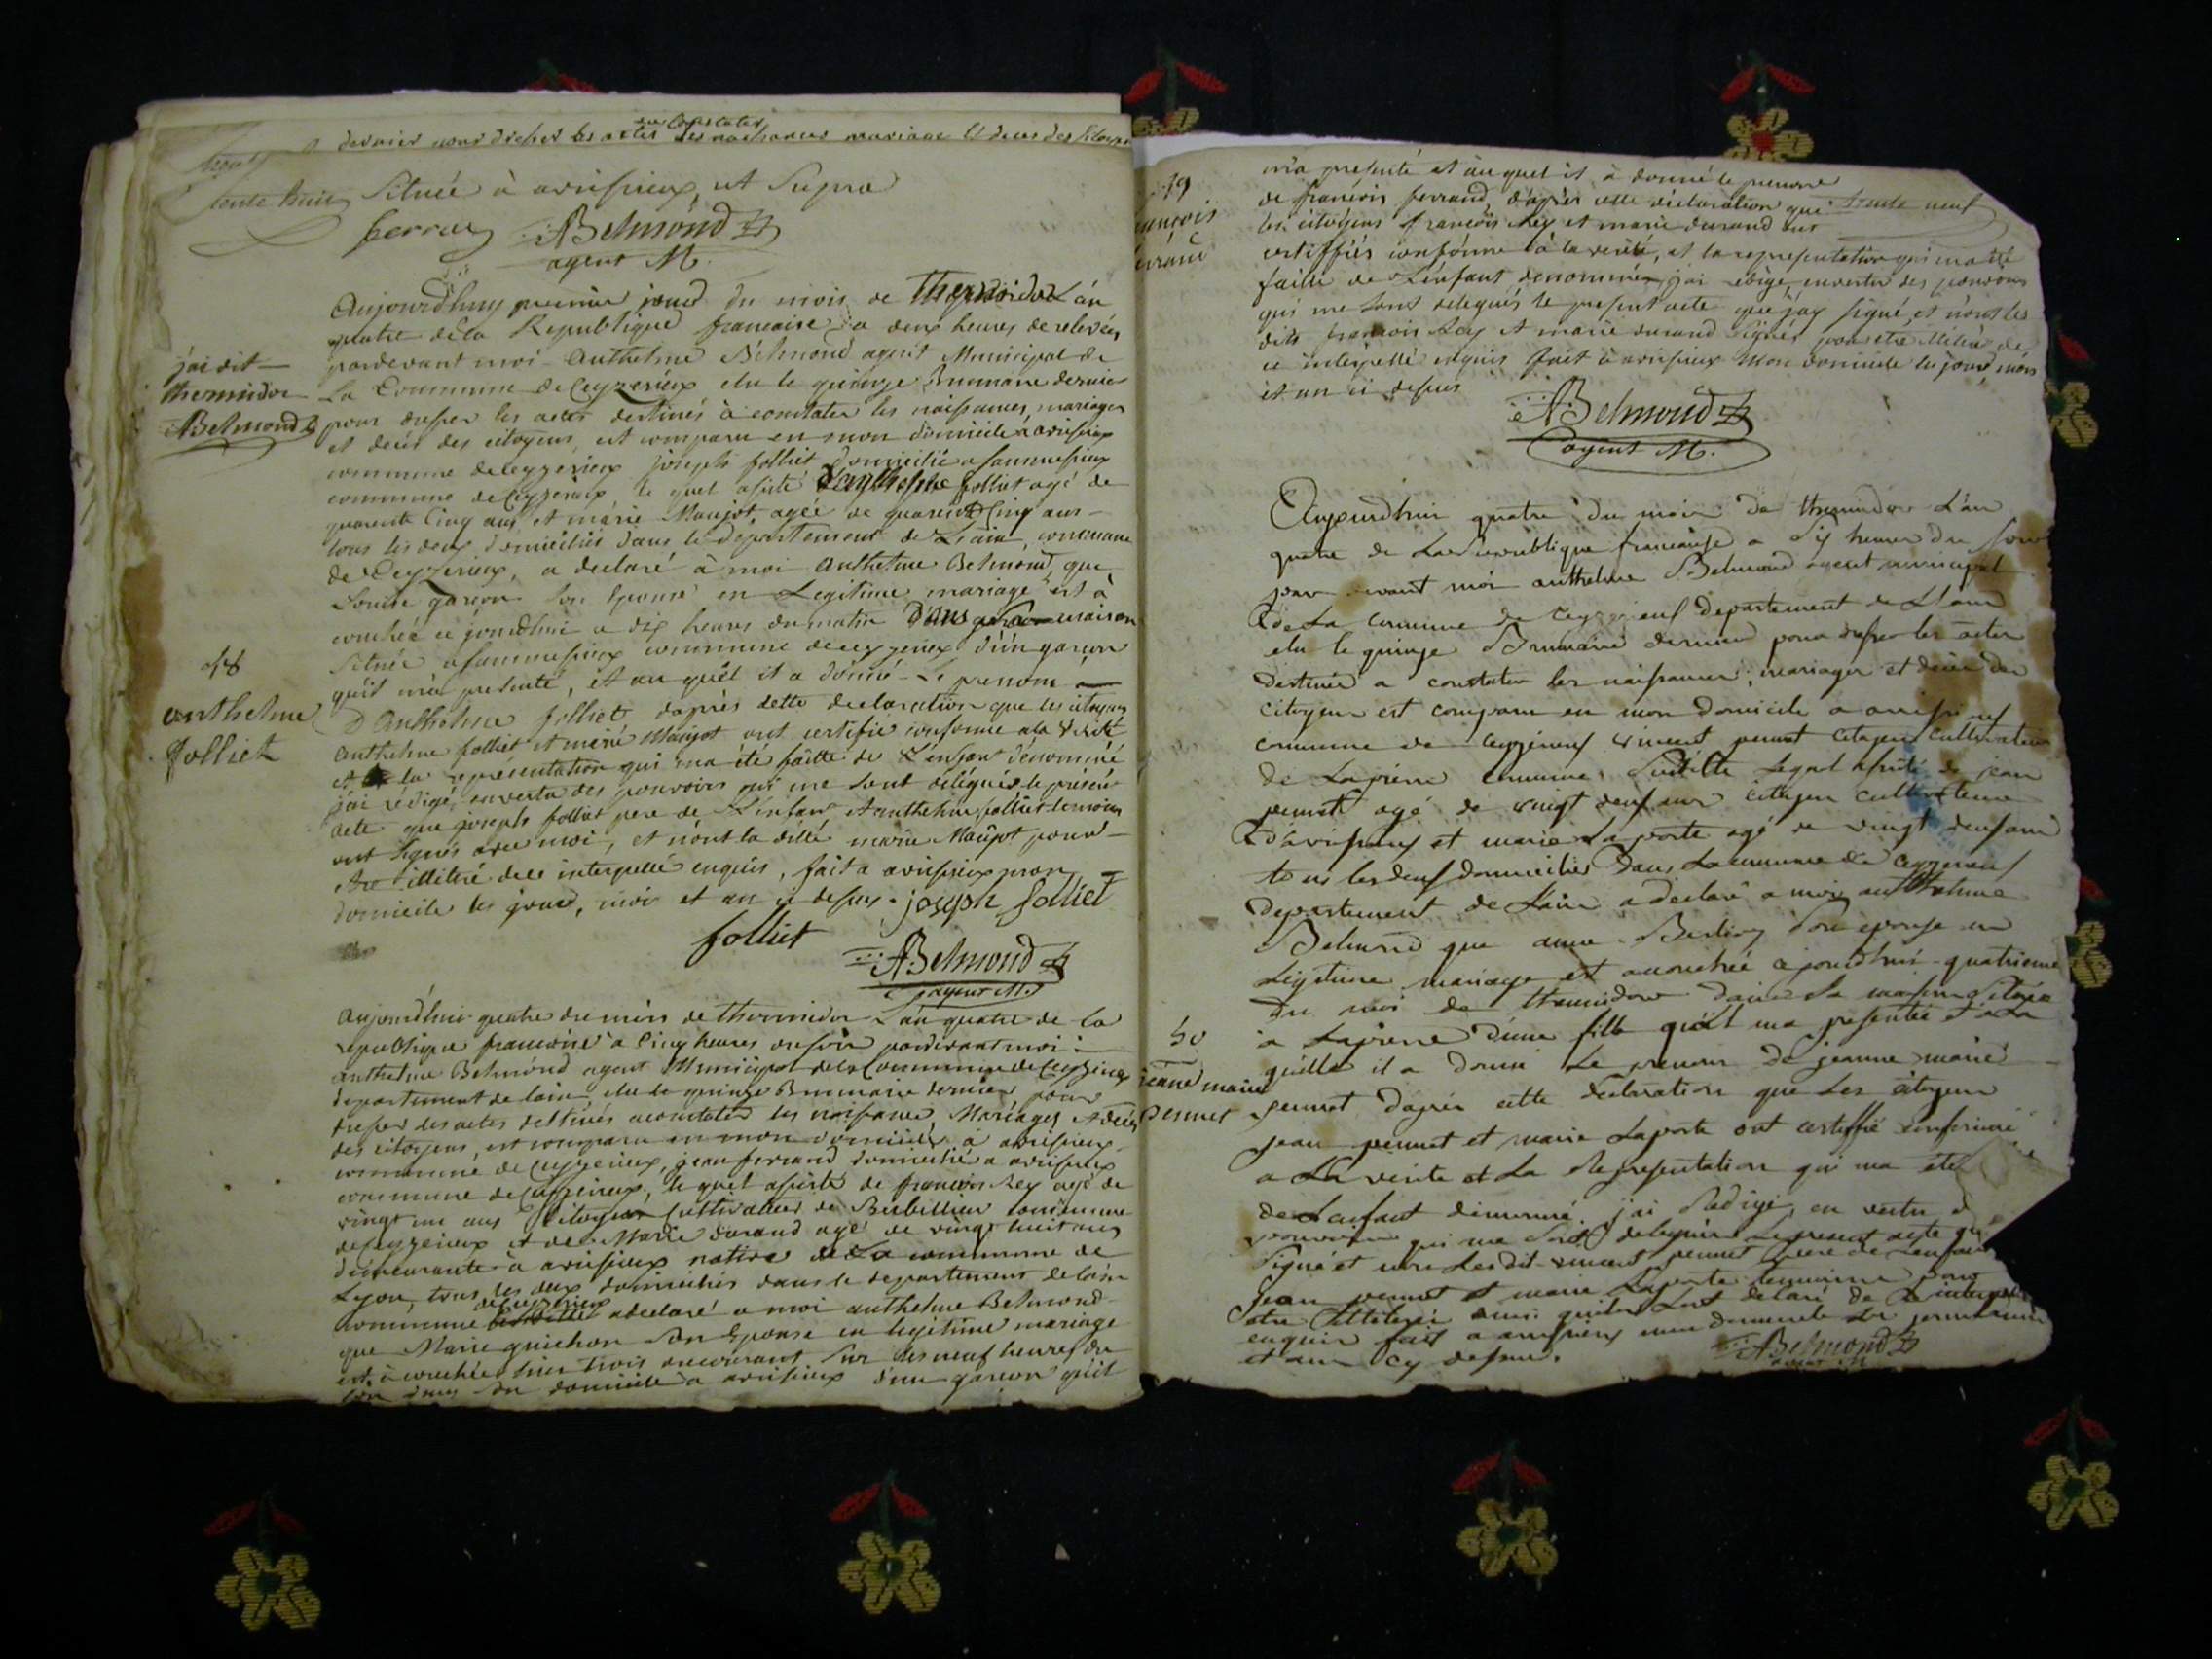 dernier pour dresser les actes des naissances mariage et deces des Citoyens
trente huit
Située à avrissieux, ut Supra
ferrand ABelmond
agent M.
Aujourdhuy premier jourd du mois de Thermidor L'an
quatre de la Republique francaise a deux heures de relevées
pardevant moi Anthelme Belmond agent Municipal de
j'ai dit
thermidor
ABelmond
La Commune de Ceyzerieux elu le quinze Brumaire dernier
pour dresser les actes destinés à constater les naissances, mariages
et décés des citoyens, est comparu en mon domicile a avrissieux
commune de ceyzerieux joseph folliet domicilié a
commune de Ceyzerieux, le quel assisté D'anthelme folliet agé de
quarente Cinq ans, et marie Maujot, agée de quarente Cinq ans
tous les deux domiciliés dans le departement de L'ain, commune
de Ceyzerieux, a declaré à moi Anthelme Belmond, que
Louise garçon Son Epouse en Legitime mariage est à
couchée ce jourdhui a dix heures du matin Dans maison
Située a commune de ceyzerieux d'un garçon
48
anthelme
folliet
qu'il m'a presenté, et au quel il a donné Le prenom
D'Anthelme folliet d'après cette declaration que les citoyens
Anthelme folliet et marie Maujot ont certifié conforme a la Verité
et la représentation qui ma été faitte de L'enfant dénommé
j'ai rédigé, en vertu des pouvoirs qui me sont délégués le présent
acte que joseph folliet pere de L'enfant et anthelme folliet temoin
ont Signés avec moi, et non la ditte marie Maujot pour
étre illitéré de ce interpellé enquis, fait a avrissieux mon
domicile les jourd, mois et an ci dessus. joseph folliet
folliet
ABelmond
agent M.
Aujourdhui quatre du mois de thermidor L'an quatre de la
republique francaise à Cinq heures du soir pardevant moi
anthelme Belmond agent Municipal de la Commune de Ceyzerieux
departement de lain, elu le quinze Brumaire dernier pour
dresser les actes destinés a constater les naissances Mariages et décés
des citoyens, est comparu en mon domicile à avrissieux
commune de Ceyzerieux, jean ferrand domicilié a avrissieux
commune de Ceyzerieux, le quel assisté de francois Rey agé de
vingt un ans Citoyen Cultivateur de commune
de ceyzerieux et de Marie durand agé de vingt huit ans
demeurante à avrissieux native de La commune de
Lyon, tous les deux domiciliés dans le departement de lain
commune de ceyzerieux a declaré a moi anthelme Belmond
que Marie guichon Son Epouse en legitime mariage
est à couchée hier trois du courant Sur les neuf heures du
soir dans Son domicile a avrissieux d'un garçon qu'il
49
françois
ferrand
m'a presenté et au quel il à donné le prenom
trente neuf
de francois ferrand, d'apres cette déclaration que
les citoyens francois Rey et marie durand ont
certiffiés conforme à la verité, et la representation qui ma été
faitte de L'enfant denommé, j'ai redigé en vertu des pouvoirs
qui me sont delegués le present acte que j'ay signé, et non les
dits francois Rey et marie durand Signés pour etre illitéré de
ce interpellé enquis fait à avrissieux mon domicile les jourd, mois
et an ci dessus
ABelmond
agent M.
Aujourdhui quatre du mois de thermidor L'an
quatre de La Republique francaise a Six heures du soir
par devant moi anthelme Belmond agent municipal
de La commune de Ceyzerieux departement de L'ain
elu le quinze Brumaire dernier pour dresser les actes
destinés a constater les naissances, mariages et déces des
citoyens est comparu en mon domicile a avrissieux
commune de Ceyzerieux vincent pernet citoyen cultivateur
de Lapierre commune Susditte Lequel assisté de jean
pernet agé de vingt deux ans citoyen cultivateur
d'avrissieux et marie Laporte agé de vingt deux ans
tous les deux domiciliés dans La commune de Ceyzerieux
departement de L'ain a declaré a moi anthelme
Belmond que anne Son epouse en
Legitime mariage est accouchée ajourdhui quatrieme
du mois de thermidor dans Sa maison Située
50
jeanne marie
pernet
a Lapierre d'une fille qu'il ma presentée et a La
quelle il a donné Le prenom de jeanne marie
pernet d'apres cette declaration que Les citoyens
jean pernet et marie Laporte ont certiffié conforme
a La verité et La Representation qui ma eté
de L'enfant denommé. j'ai Redigé, en vertu
pouvoirs qui me Sont delegués Le present acte
Signé et non Lesdit vincent pernet pere de Lenfant
jean pernet et marie Laporte temoins pour
etre illiteré ainsi qu'ils L'ont declaré de ce
enquis fait a avrissieux mon domicile Les jour mois
et an cy dessus.
ABelmond
agent M